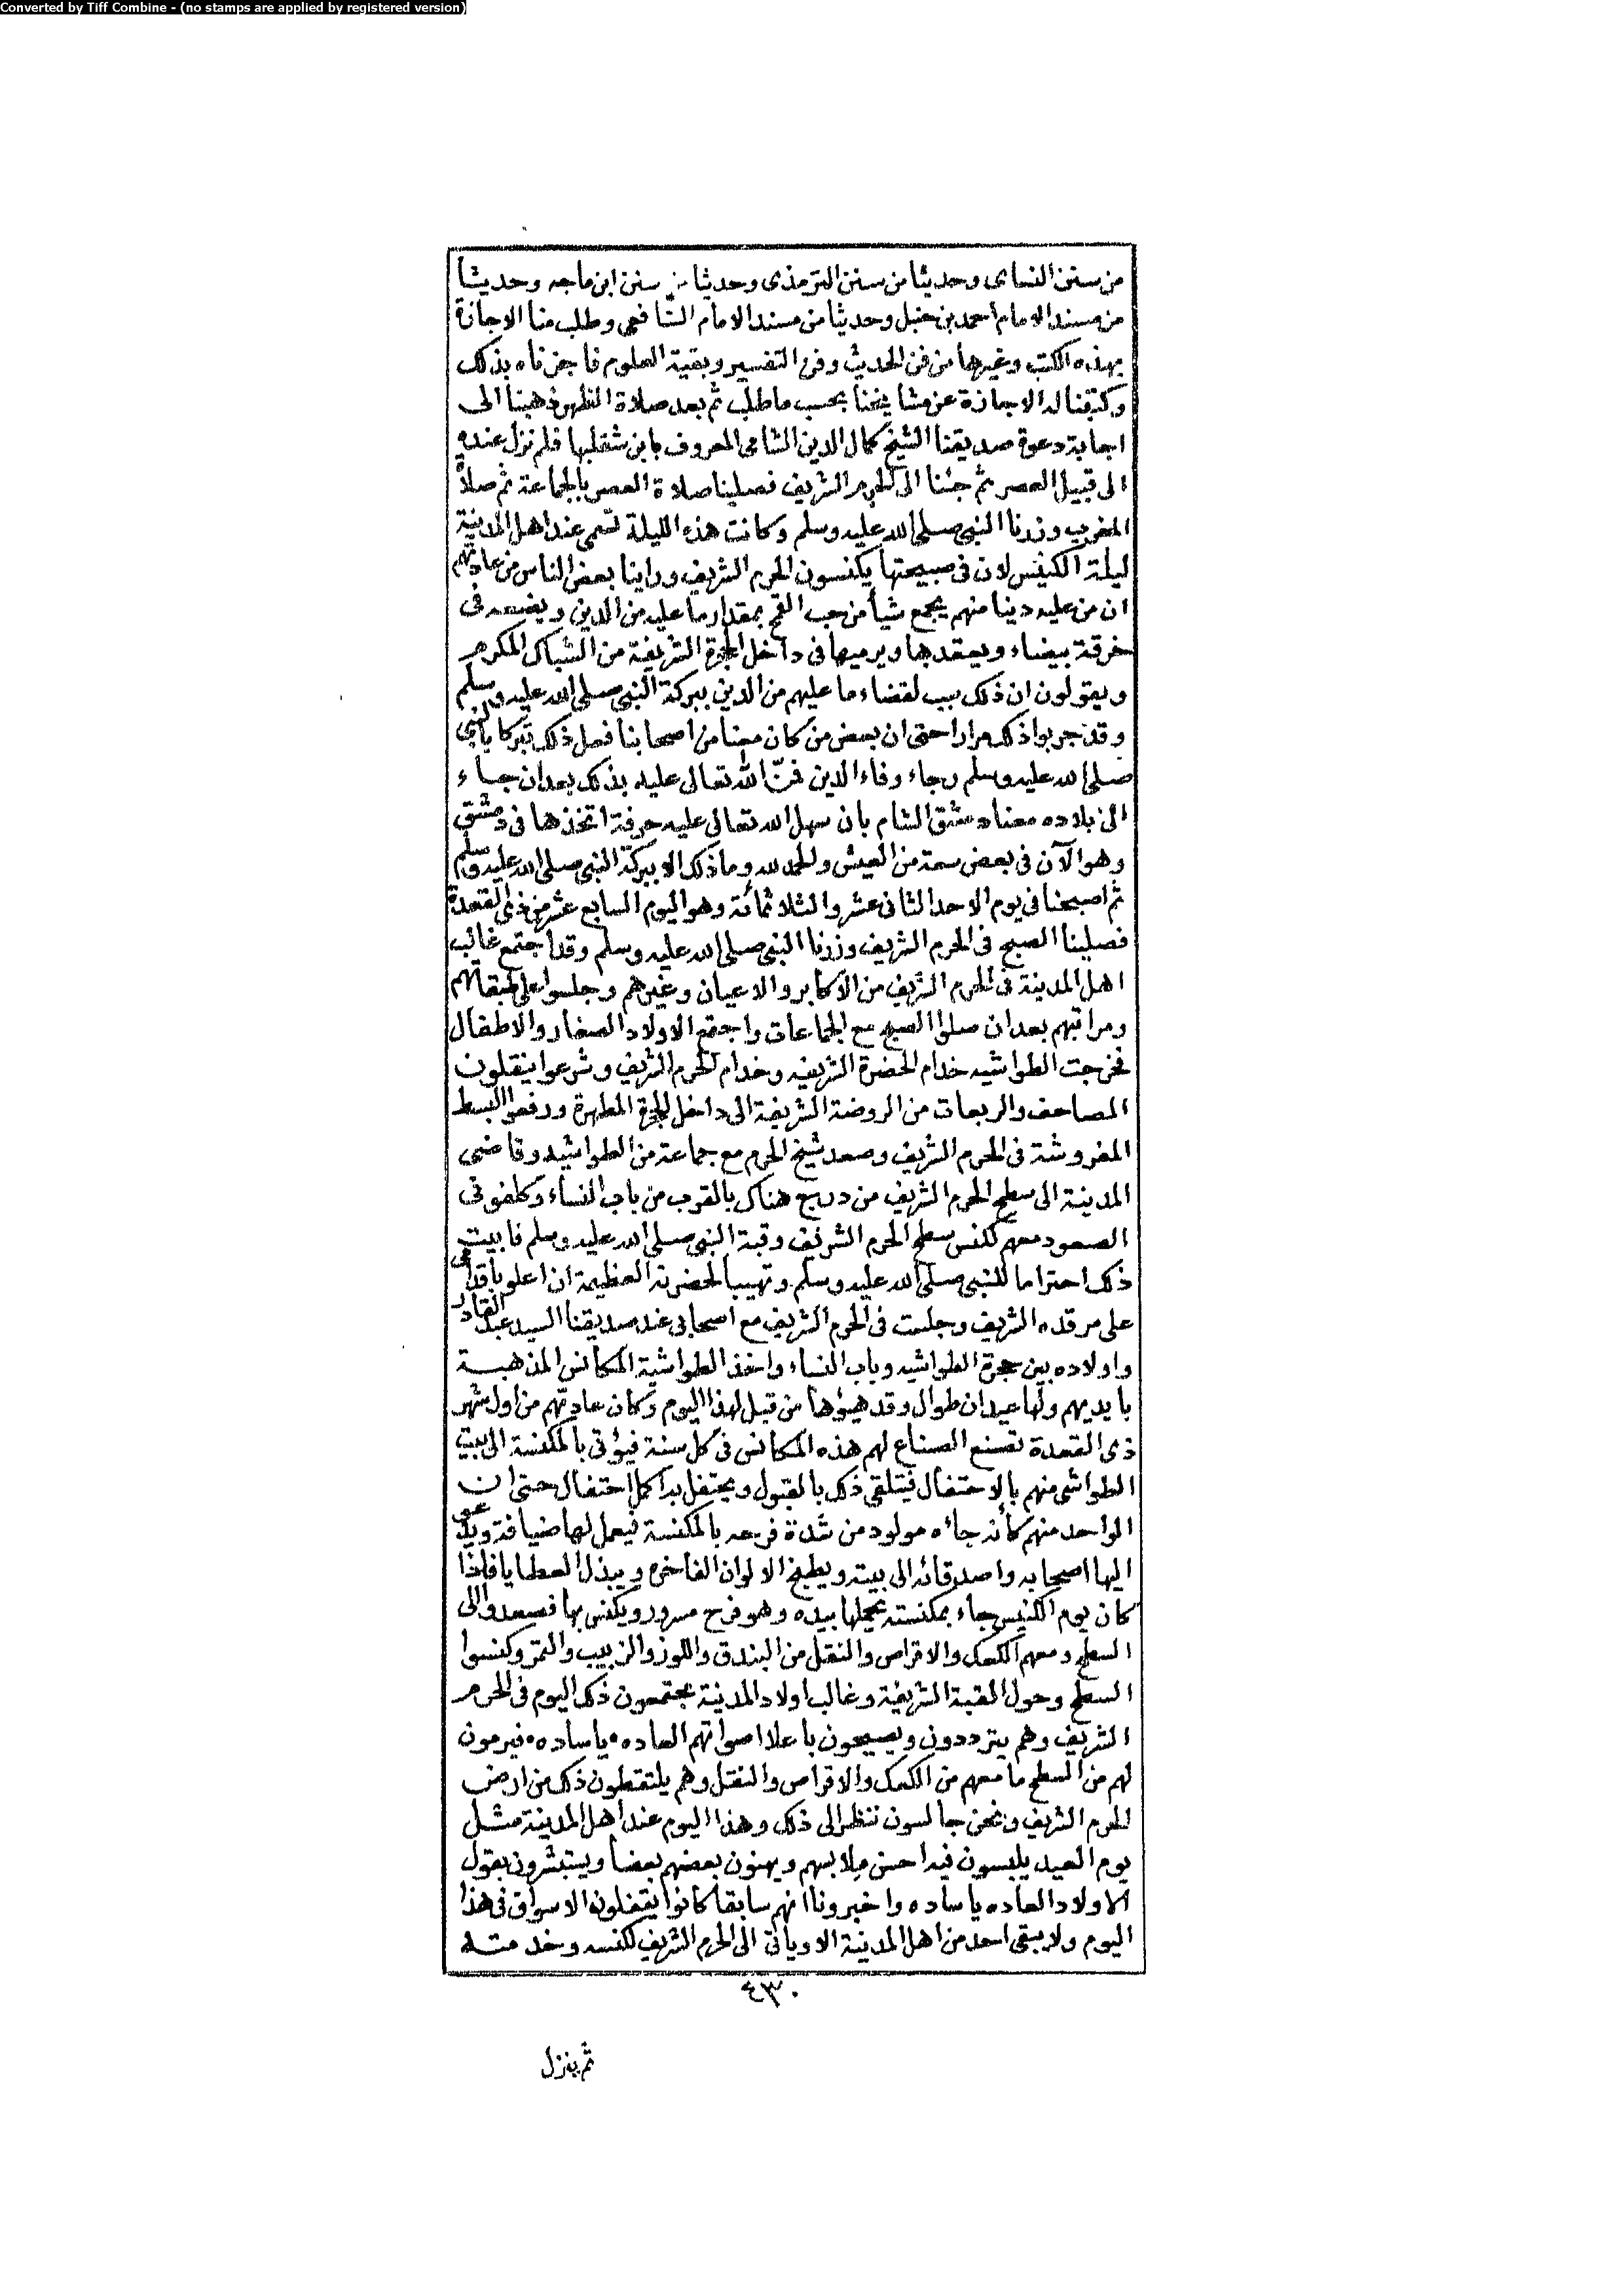 Converted by Tiff Combine - (no stamps are applied by registered version)
من سنن النساى وحديثا من سنن الترمذى وحديثا من سنن ابن ماجه وحديثا
من مسند الامام أحمد بن حنبل وحديثا من مسند الامام الشافعى وطلب منا الاجازة
بهذه الكتب وغيرها من فن الحديث وفن التفسير وبقية العلوم فاجزناه بذلك
وكتبنا له الاجازة عن مشايخنا بحسب ما طلب ثم بعد صلاة الظهر ذهبنا الى
اجابة دعوة صديقنا الشيخ كمال الدين الشامى المعروف بابن شقلبها فلم نزل عنده
الى قبيل العصر ثم جئنا الى الحرم الشريف فصلينا صلاة العصر بالجماعة ثم صلاة
المغرب وزرنا النبى صلى الله عليه وسلم وكانت هذه الليلة تسمى عند اهل المدينة
ليلة الكنيس لان فى صبيحتها يكنسون الحرم الشريف وراينا بعض الناس من عادتهم
ان من عليه دينا منهم يجمع شيأ من حب القمح بمقدار ما عليه من الدين ويضعه فى
خرقة بيضاء ويعقدها ويرميها فى داخل الحجرة الشريفة من الشباك المكرم
ويقولون ان ذلك سبب لقضاء ما عليهم من الدين ببركة النبى صلى الله عليه وسلم
وقد جربوا ذلك مرارا حتى ان بعض من كان معنا من اصحابنا فعل ذلك تبركا بالنبى
صلى الله عليه وسلم رجاء وفاء الدين فمنّ الله تعالى عليه بذلك بعد ان جاء
الى بلاده معنا دمشق الشام بان سهل الله تعالى عليه حرفة اتخذها فى دمشق
وهو الآن فى بعض سعة من العيش والحمد لله وما ذلك الا ببركة النبى صلى الله عليه وسلم
ثم اصبحنا فى يوم الاحد الثانى عشر والثلاثمائة وهو اليوم السابع عشر من ذى القعدة
فصلينا الصبح فى الحرم الشريف وزرنا النبى صلى الله عليه وسلم وقد اجتمع غالب
اهل المدينة فى الحرم الشريف من الاكابر والاعيان وغيرهم وجلسوا على طبقاتهم
ومراتبهم بعد ان صلوا الصبح مع الجماعات واجتمع الاولاد الصغار والاطفال
فخرجت الطواشيه خدام الحضرة الشريفه وخدام الحرم الشريف وشرعوا ينقلون
المصاحف والربعات من الروضة الشريفة الى داخل الحجرة المطهرة ورفعوا البسط
المفروشة فى الحرم الشريف وصعد شيخ الحرم مع جماعة من الطواشيه وقاضى
المدينة الى سطح الحرم الشريف من درج هناك بالقرب من باب النساء وكلفونى
الصعود معهم لكنس سطح الحرم الشريف وقبة النبى صلى الله عليه وسلم فابيت
ذلك احتراما للنبى صلى الله عليه وسلم وتهيبا لحضرته العظيمة ان اعلو باقدامى
على مرقده الشريف وجلست فى الحرم الشريف مع اصحابى عند صديقنا السيد عبد القادر
واولاده بين حجرة الطواشيه وباب النساء واخذ الطواشية المكانس المذهبة
بايديهم ولها عيدان طوال وقد هيؤها من قبل لهذا اليوم وكان عادتهم من اول شهر
ذى القعدة تصنع الصناع لهم هذه المكانس فى كل سنة فيؤتى بالمكنسة الى بيت
الطواشى منهم بالاحتفال فيتلقى ذلك بالقبول ويحتفل به اكمل احتفال حتى ان
الواحد منهم كأنه جاءه مولود من شدة فرحه بالمكنسة فيعمل لها ضيافة ويدعو
اليها اصحابه واصدقائه الى بيته ويطبخ الالوان الفاخره ويبذل العطايا فاذا
كان يوم الكنيس جاء بمكنسته يحملها بيده وهو فرح مسرور ويكنس بها فصعدوا الى
السطح ومعهم الكعك والاقراص والنقل من البندق واللوز والزبيب والتمر وكنسوا
السطح وحول القبة الشريفة وغالب اولاد المدينة يجتمعون ذلك اليوم فى الحرم
الشريف وهم يترددون ويصيحون باعلا اصواتهم العاده ياساده فيرمون
لهم من السطح ما معهم من الكعك والاقراص والنقل وهم يلتقطون ذلك من ارض
الحرم الشريف ونحن جالسون ننظر الى ذلك وهذا اليوم عند اهل المدينة مثل
يوم العيد يلبسون فيه احسن ملابسهم ويهنون بعضهم بعضا ويستبشرون بقول
الاولاد العاده ياساده واخبرونا انهم سابقا كانوا يقفلون الاسواق فى هذا
اليوم ولا يبقى احد من اهل المدينة الا وياتى الى الحرم الشريف لكنسه وخدمته
٤٣٠
ثم ينزل